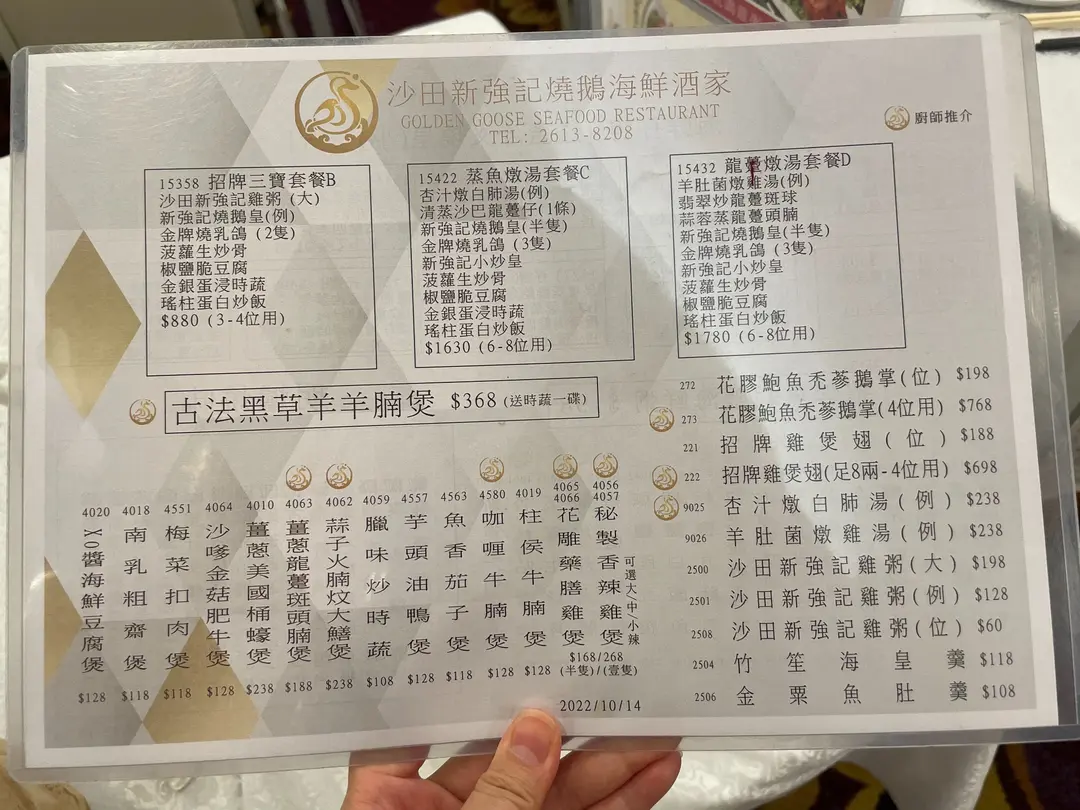 沙田新強記燒鵝海鮮酒家
GOLDEN GOOSE SEAFOOD RESTAURANT
TEL: 2613-8208
廚師推介
15358 招牌三寶套餐B
沙田新強記雞粥 (大)
新強記燒鵝皇(例)
金牌燒乳鴿 (2隻)
菠蘿生炒骨
椒鹽脆豆腐
金銀蛋浸時蔬
瑤柱蛋白炒飯
$880 (3-4位用)
15422 蒸魚燉湯套餐C
杏汁燉白肺湯(例)
清蒸沙巴龍躉仔(1條)
新強記燒鵝皇(半隻)
金牌燒乳鴿 (3隻)
新強記小炒皇
菠蘿生炒骨
椒鹽脆豆腐
金銀蛋浸時蔬
瑤柱蛋白炒飯
$1630 (6-8位用)
15432 龍躉燉湯套餐D
羊肚菌燉雞湯(例)
翡翠炒龍躉斑球
蒜蓉蒸龍躉頭腩
新強記燒鵝皇(半隻)
金牌燒乳鴿 (3隻)
新強記小炒皇
菠蘿生炒骨
椒鹽脆豆腐
瑤柱蛋白炒飯
$1780 (6-8位用)
古法黑草羊羊腩煲 $368 (送時蔬一碟)
4020 XO醬海鮮豆腐煲 $128
4018 南乳粗齋煲 $118
4551 梅菜扣肉煲 $118
4064 沙嗲金菇肥牛煲 $128
4010 薑蔥美國桶蠔煲 $238
4063 薑蔥龍躉斑頭腩煲 $188
4062 蒜子火腩炆大鱔煲 $238
4059 臘味炒時蔬 $108
4557 芋頭油鴨煲 $128
4563 魚香茄子煲 $118
4580 咖喱牛腩煲 $128
4019 柱侯牛腩煲 $128
4065 4066 花雕藥膳雞煲
4056 4057 秘製香辣雞煲 可選大中小辣
$168/268
(半隻)/(壹隻)
272 花膠鮑魚禿蔘鵝掌(位) $198
273 花膠鮑魚禿蔘鵝掌(4位用) $768
221 招牌雞煲翅(位) $188
222 招牌雞煲翅(足8兩-4位用) $698
9025 杏汁燉白肺湯(例) $238
9026 羊肚菌燉雞湯(例) $238
2500 沙田新強記雞粥(大) $198
2501 沙田新強記雞粥(例) $128
2508 沙田新強記雞粥(位) $60
2504 竹笙海皇羹 $118
2506 金粟魚肚羹 $108
2022/10/14